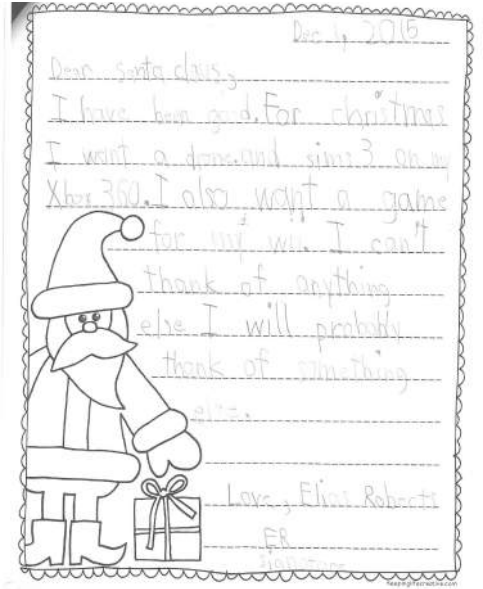 Dec 1, 2015
Dear Santa claus,
I have been good. For christmas
I want a drone. and sims 3 on my
Xbox 360. I also want a game
for my wii. I can't
thank of anything
else I will probably
thank of something
else.
Love, Elias Roberts
ER
signature
keepinglifecreative.com